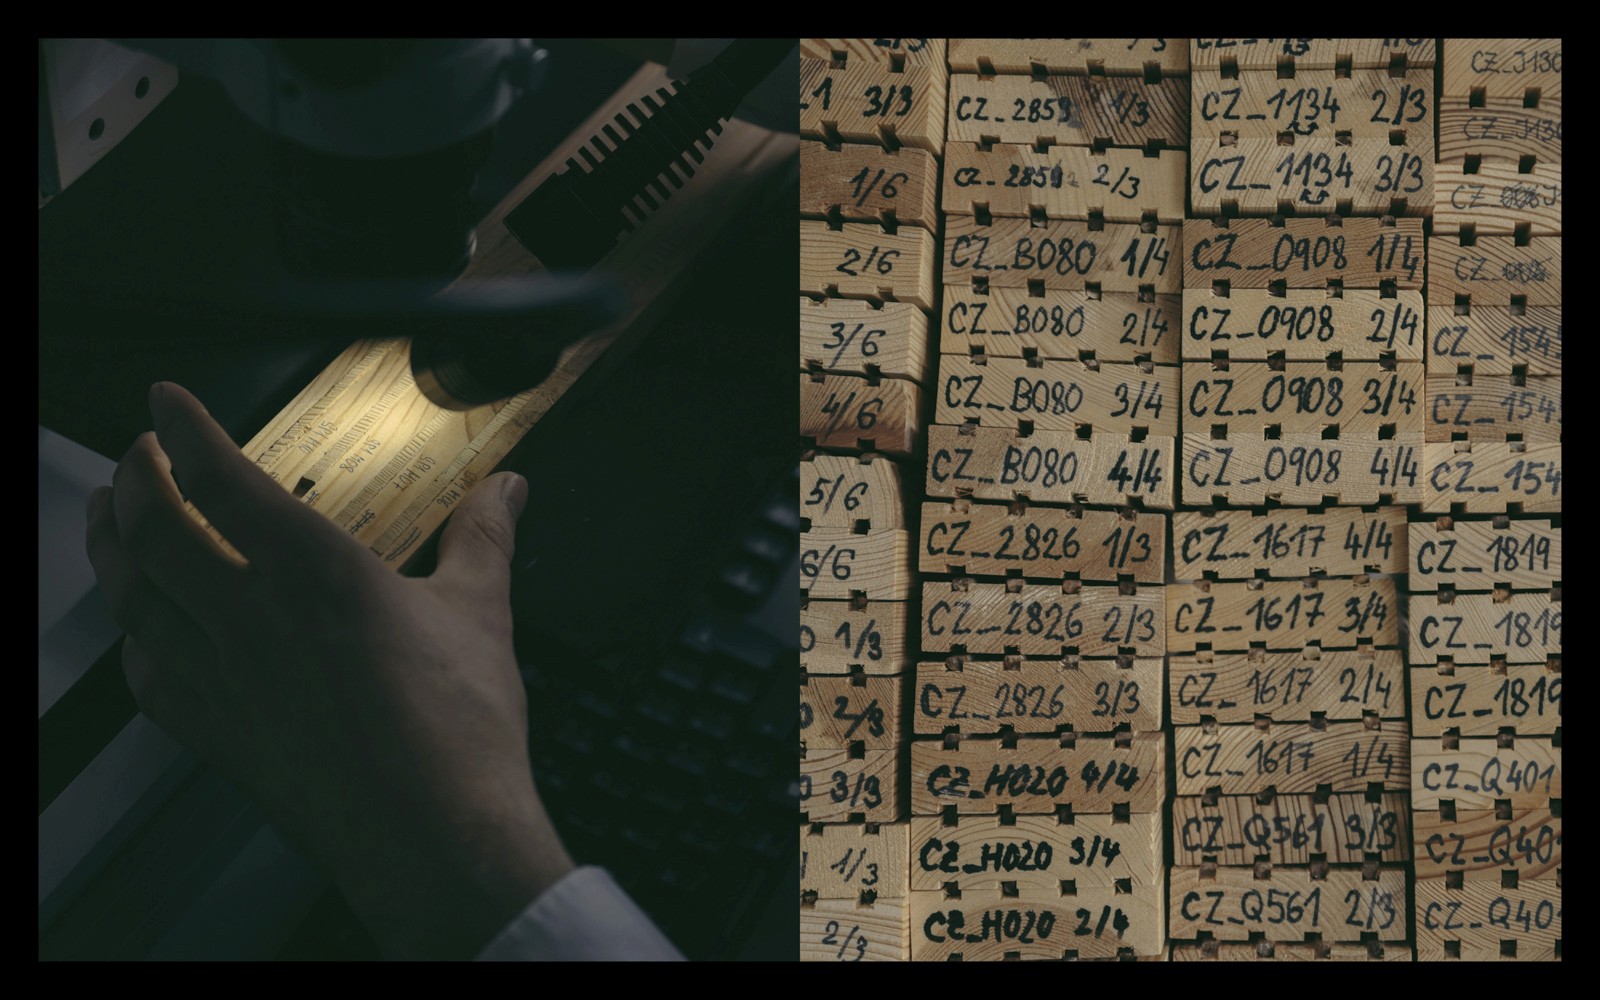 3/3
1/6
2/6
3/6
4/6
5/6
6/6
1/3
2/3
3/3
1/3
2/3
CZ_2859 1/3
CZ_2859 2/3
CZ_B080 1/4
CZ_B080 2/4
CZ_B080 3/4
CZ_B080 4/4
CZ_2826 1/3
CZ_2826 2/3
CZ_2826 3/3
CZ_H020 4/4
CZ_H020 3/4
CZ_H020 2/4
CZ_1134 2/3
CZ_1134 3/3
CZ_0908 1/4
CZ_0908 2/4
CZ_0908 3/4
CZ_0908 4/4
CZ_1617 4/4
CZ_1617 3/4
CZ_1617 2/4
CZ_1617 1/4
CZ_Q561 3/3
CZ_Q561 2/3
CZ_J130
CZ_J130
CZ
CZ_
CZ_154
CZ_154
CZ_154
CZ_1819
CZ_1819
CZ_1819
CZ_Q401
CZ_Q40
CZ_Q40